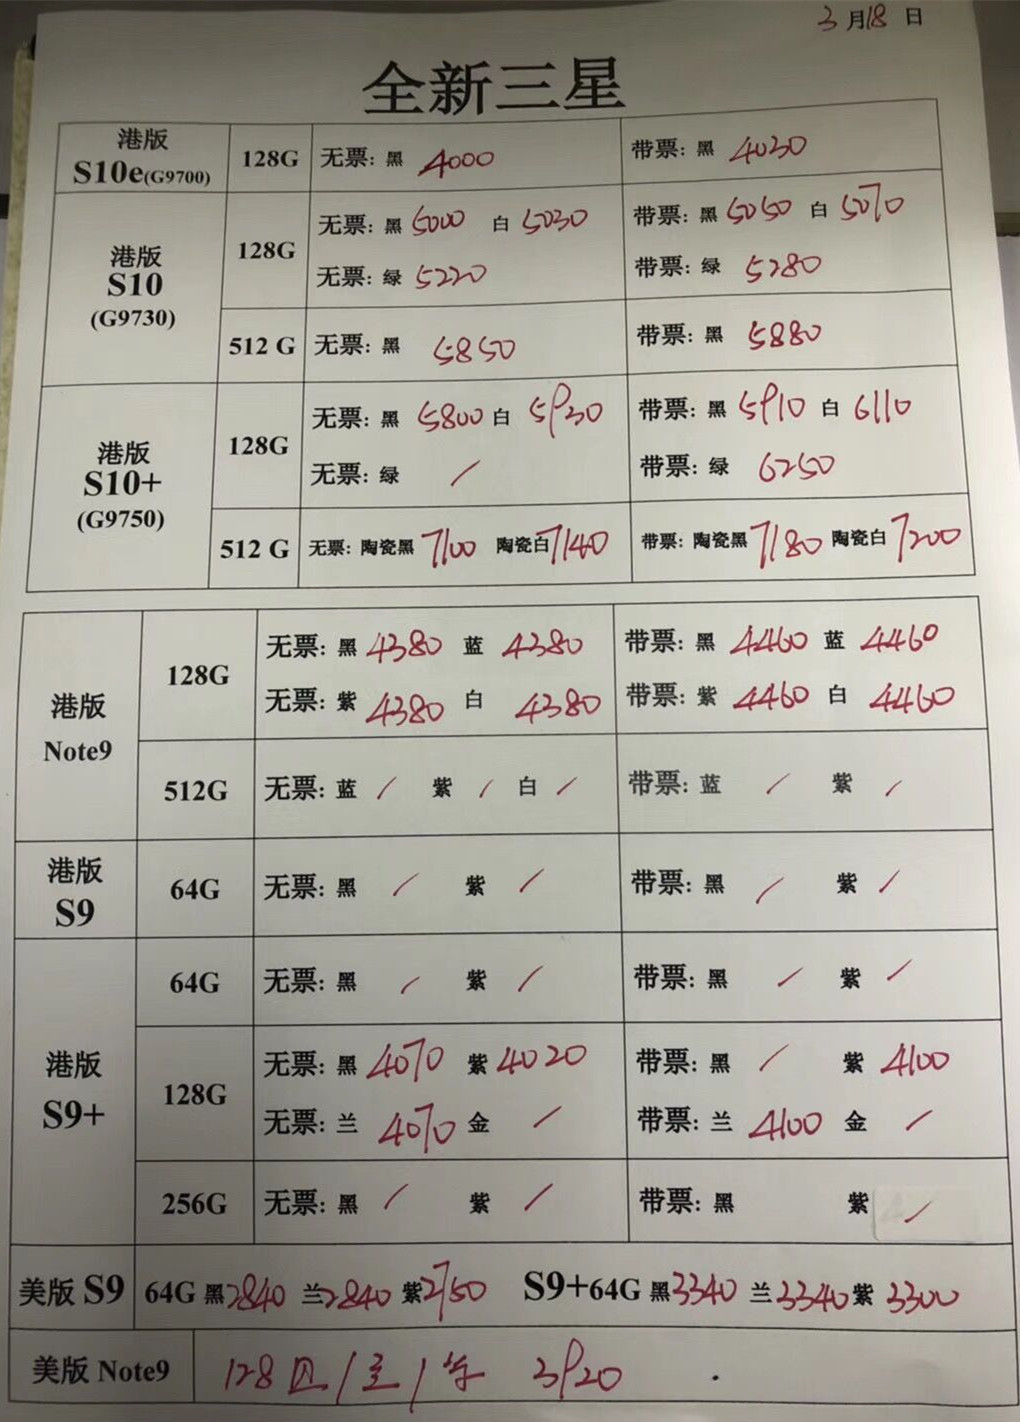 3月18日
全新三星
港版 S10e(G9700) 128G 无票: 黑 4000 带票: 黑 4030
港版 S10 (G9730) 128G 无票: 黑 5000 白 5030 带票: 黑 5050 白 5070
无票: 绿 5220 带票: 绿 5280
512 G 无票: 黑 5850 带票: 黑 5880
港版 S10+ (G9750) 128G 无票: 黑 5800 白 5930 带票: 黑 5910 白 6110
无票: 绿 / 带票: 绿 6250
512 G 无票: 陶瓷黑 7100 陶瓷白 7140 带票: 陶瓷黑 7180 陶瓷白 7200
港版 Note9 128G 无票: 黑 4380 蓝 4380 带票: 黑 4460 蓝 4460
无票: 紫 4380 白 4380 带票: 紫 4460 白 4460
512G 无票: 蓝 / 紫 / 白 / 带票: 蓝 / 紫 /
港版 S9 64G 无票: 黑 / 紫 / 带票: 黑 / 紫 /
港版 S9+ 64G 无票: 黑 / 紫 / 带票: 黑 / 紫 /
128G 无票: 黑 4070 紫 4020 带票: 黑 / 紫 4100
无票: 兰 4070 金 / 带票: 兰 4100 金 /
256G 无票: 黑 / 紫 / 带票: 黑 紫 /
美版 S9 64G 黑 2840 兰 2840 紫 2750 S9+64G 黑 3340 兰 3340 紫 3300
美版 Note9 128 / / 3920